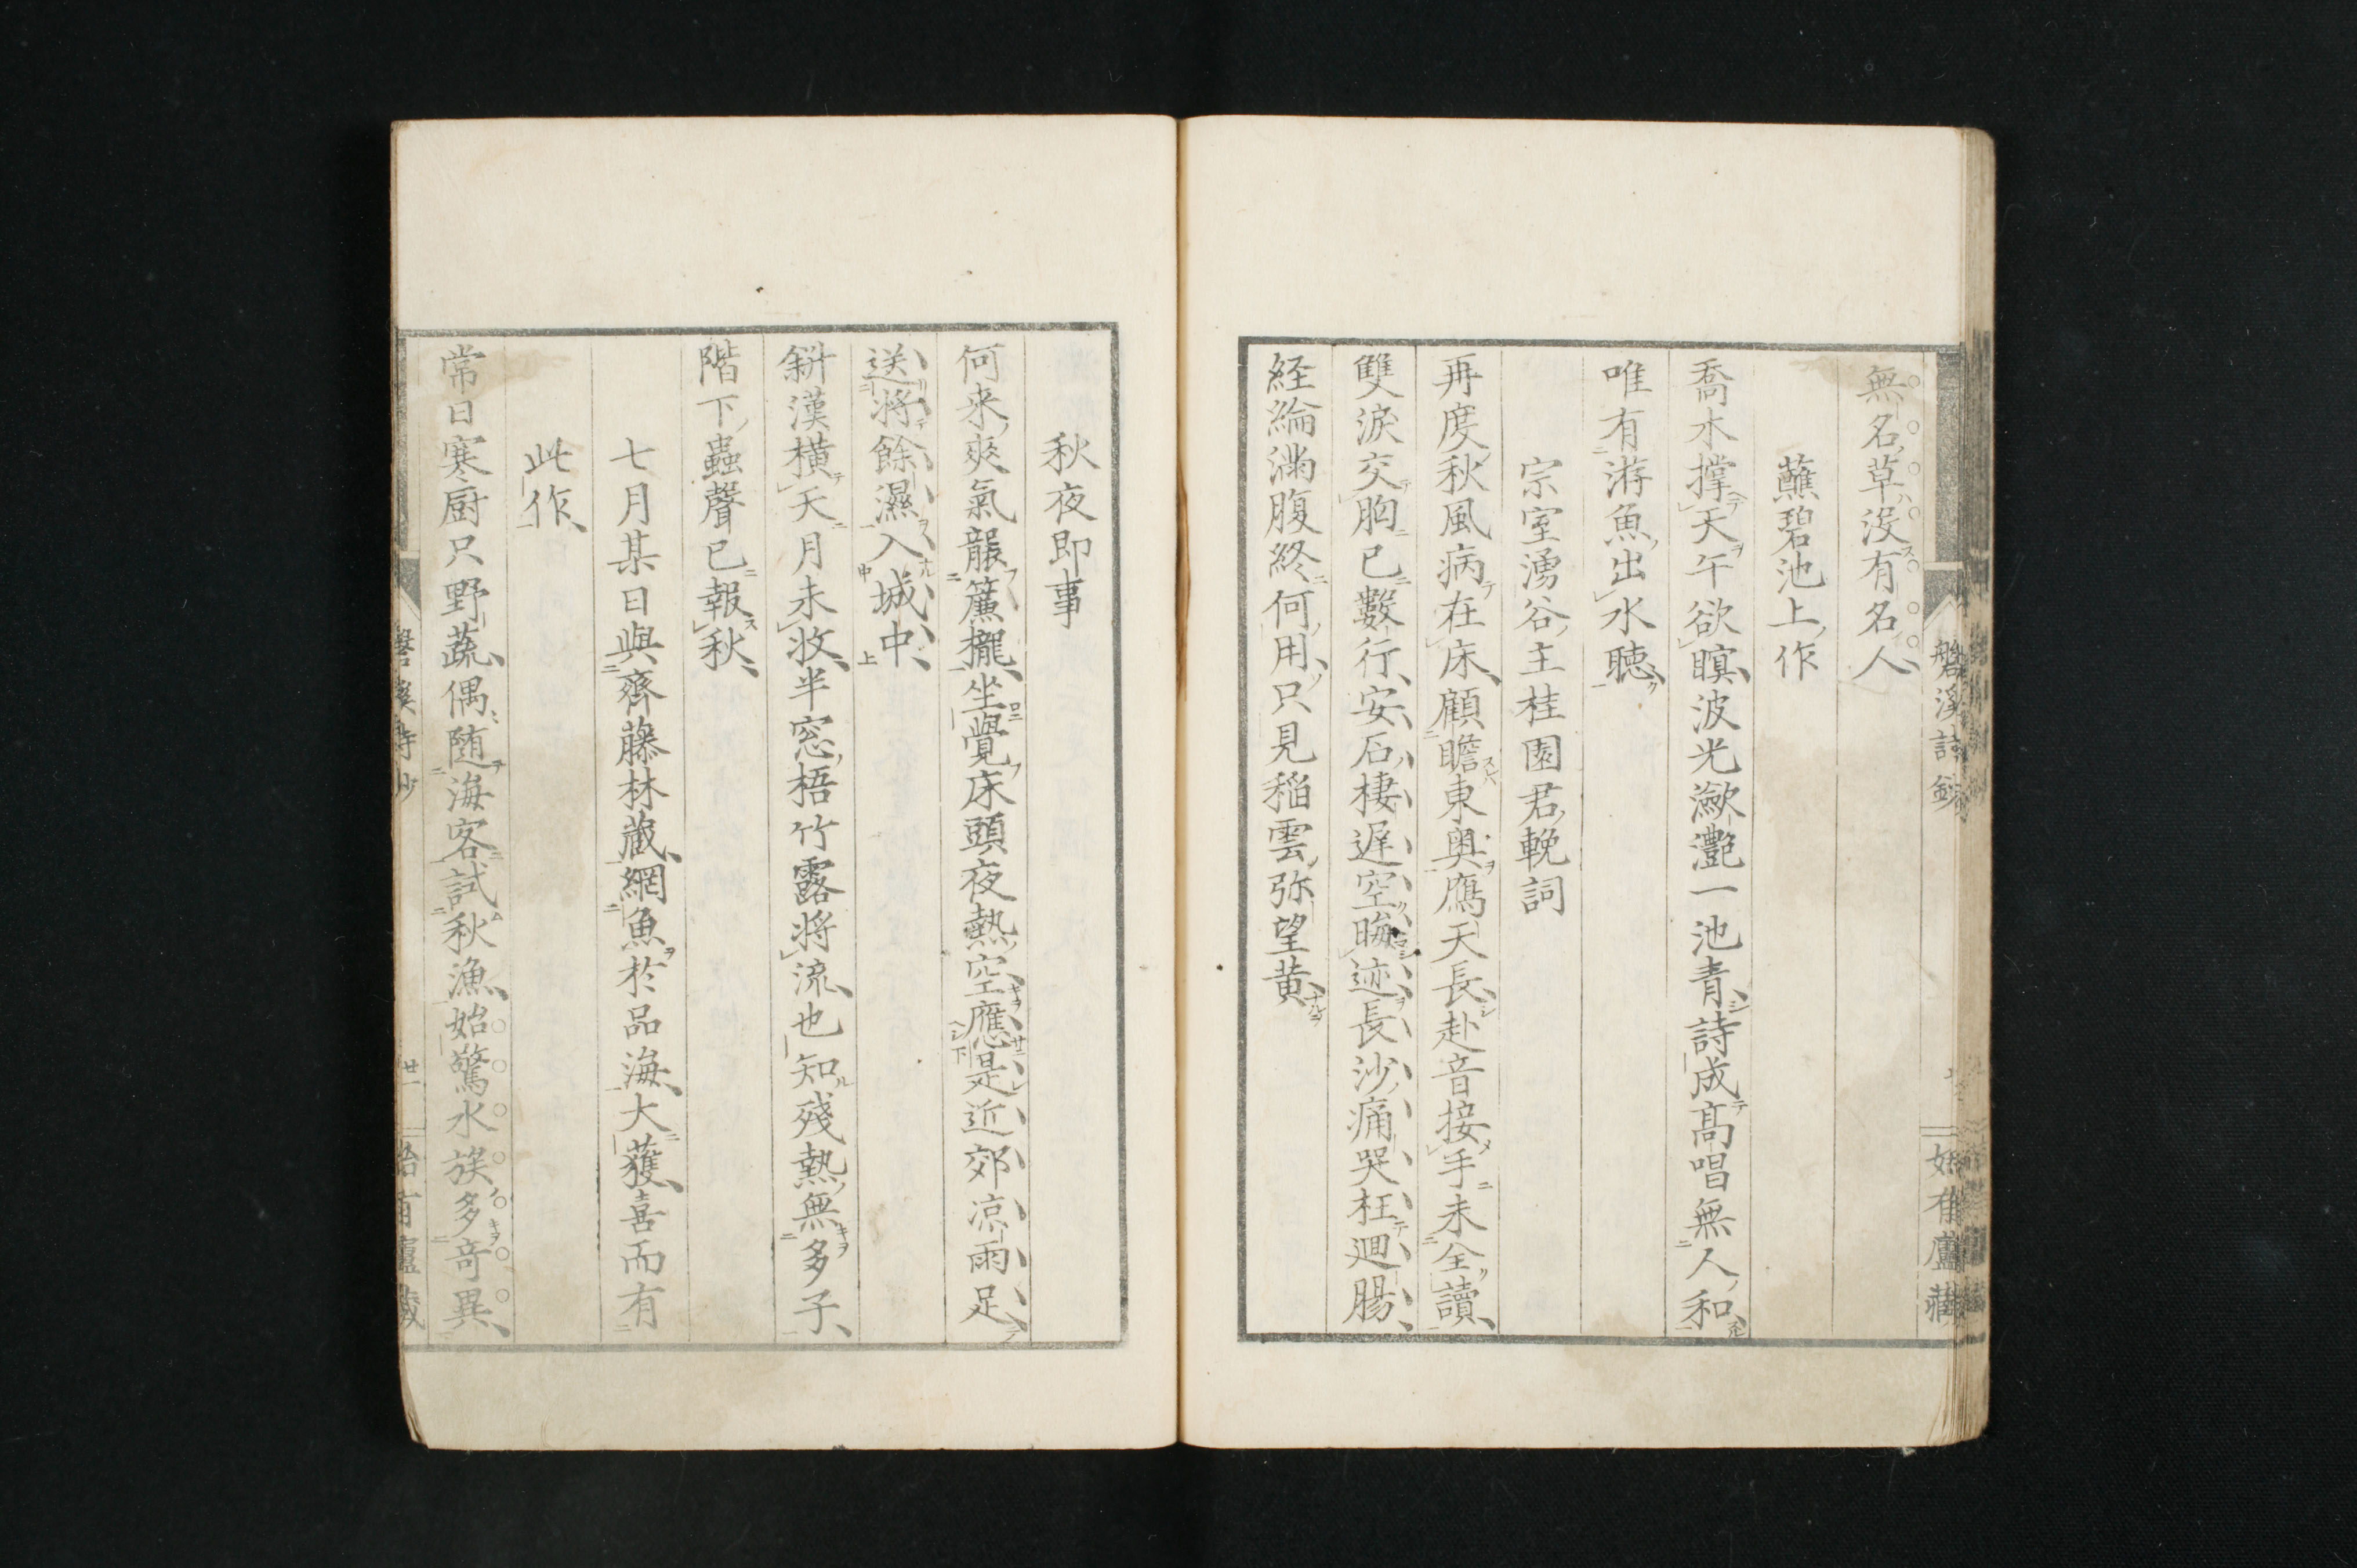 無名草没有名人
蘸碧池上作
喬木撑天午欲瞑波光瀲灔一池青詩成髙唱無人和
唯有游魚出水聴
宗室湧谷主桂園君輓詞
再度秋風病在床顧瞻東奥鴈天長赴音接手未全讀
雙淚交胸已數行安石棲遅空晦迹長沙痛哭枉迴腸
経綸滿腹終何用只見稲雲弥望黄
秋夜即事
何来爽氣脹簾櫳坐覺床頭夜熱空應是近郊凉雨足
送將餘濕入城中
斜漢橫天月未收半窓梧竹露將流也知殘熱無多子
階下蟲聲已報秋
七月某日與齊藤林蔵網魚於品海大獲喜而有
此作
常日寒厨只野蔬偶随海客試秋漁始驚水族多奇異
磐溪詩鈔
廿一